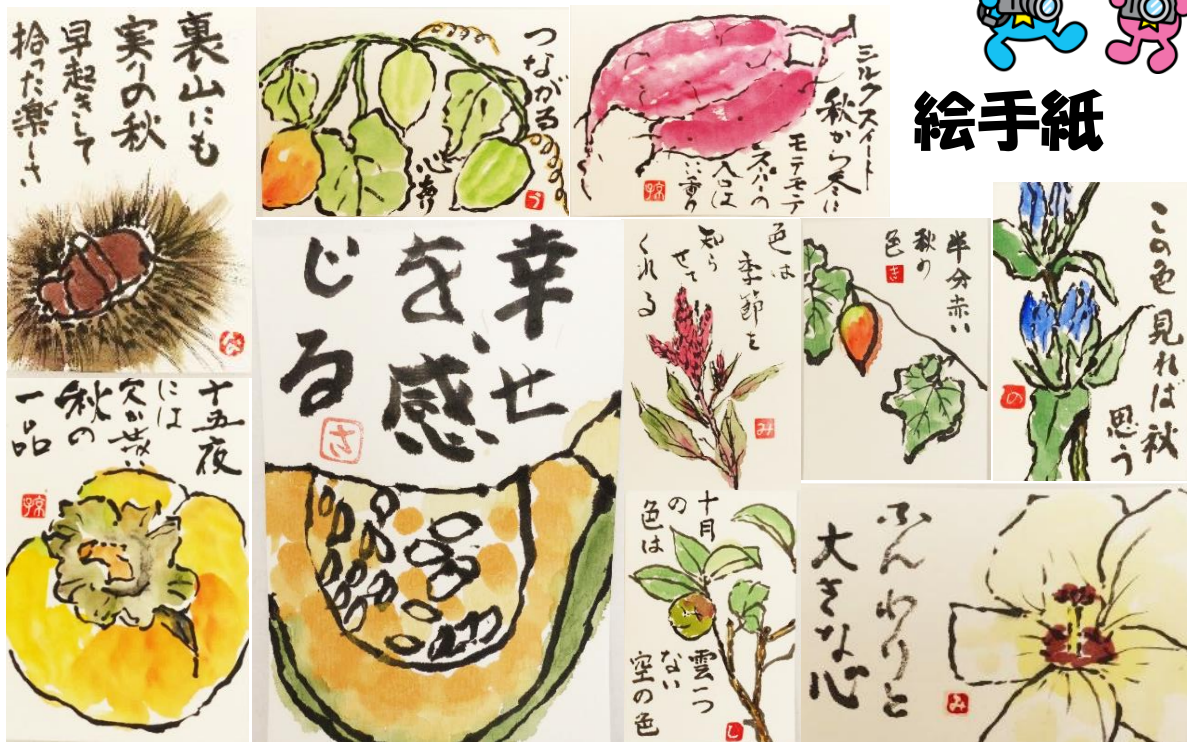 絵手紙
裏山にも
実りの秋
早起きして
拾った楽しさ
つながる
心
シルクスイート
秋から冬に
モテモテ
スーパーの
入口は
いい香り
幸せ
を、感
じる
さ
色は
季節を
知ら
せて
くれる
み
半分赤い
秋の
色
き
この色見れば秋
思う
の
十五夜
には
欠かせない
秋の
一品
十月
の
色は
雲一つ
ない
空の色
し
ふんわりと
大きな心
み